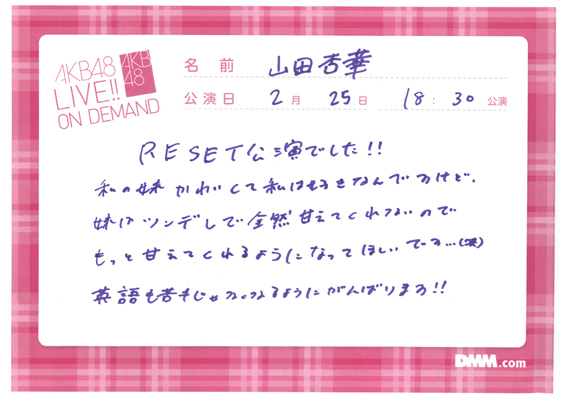 AKB48
LIVE!!
ON DEMAND
AKB
48
名前 山田杏華
公演日 2月 25日 18:30公演
RESET公演でした!!
私の妹かわいくて私は好きなんですけど、
妹はツンデレで全然甘えてくれないので
もっと甘えてくれるようになってほしいです…(笑)
英語も苦手じゃなくなるようにがんばります!!
DMM.com